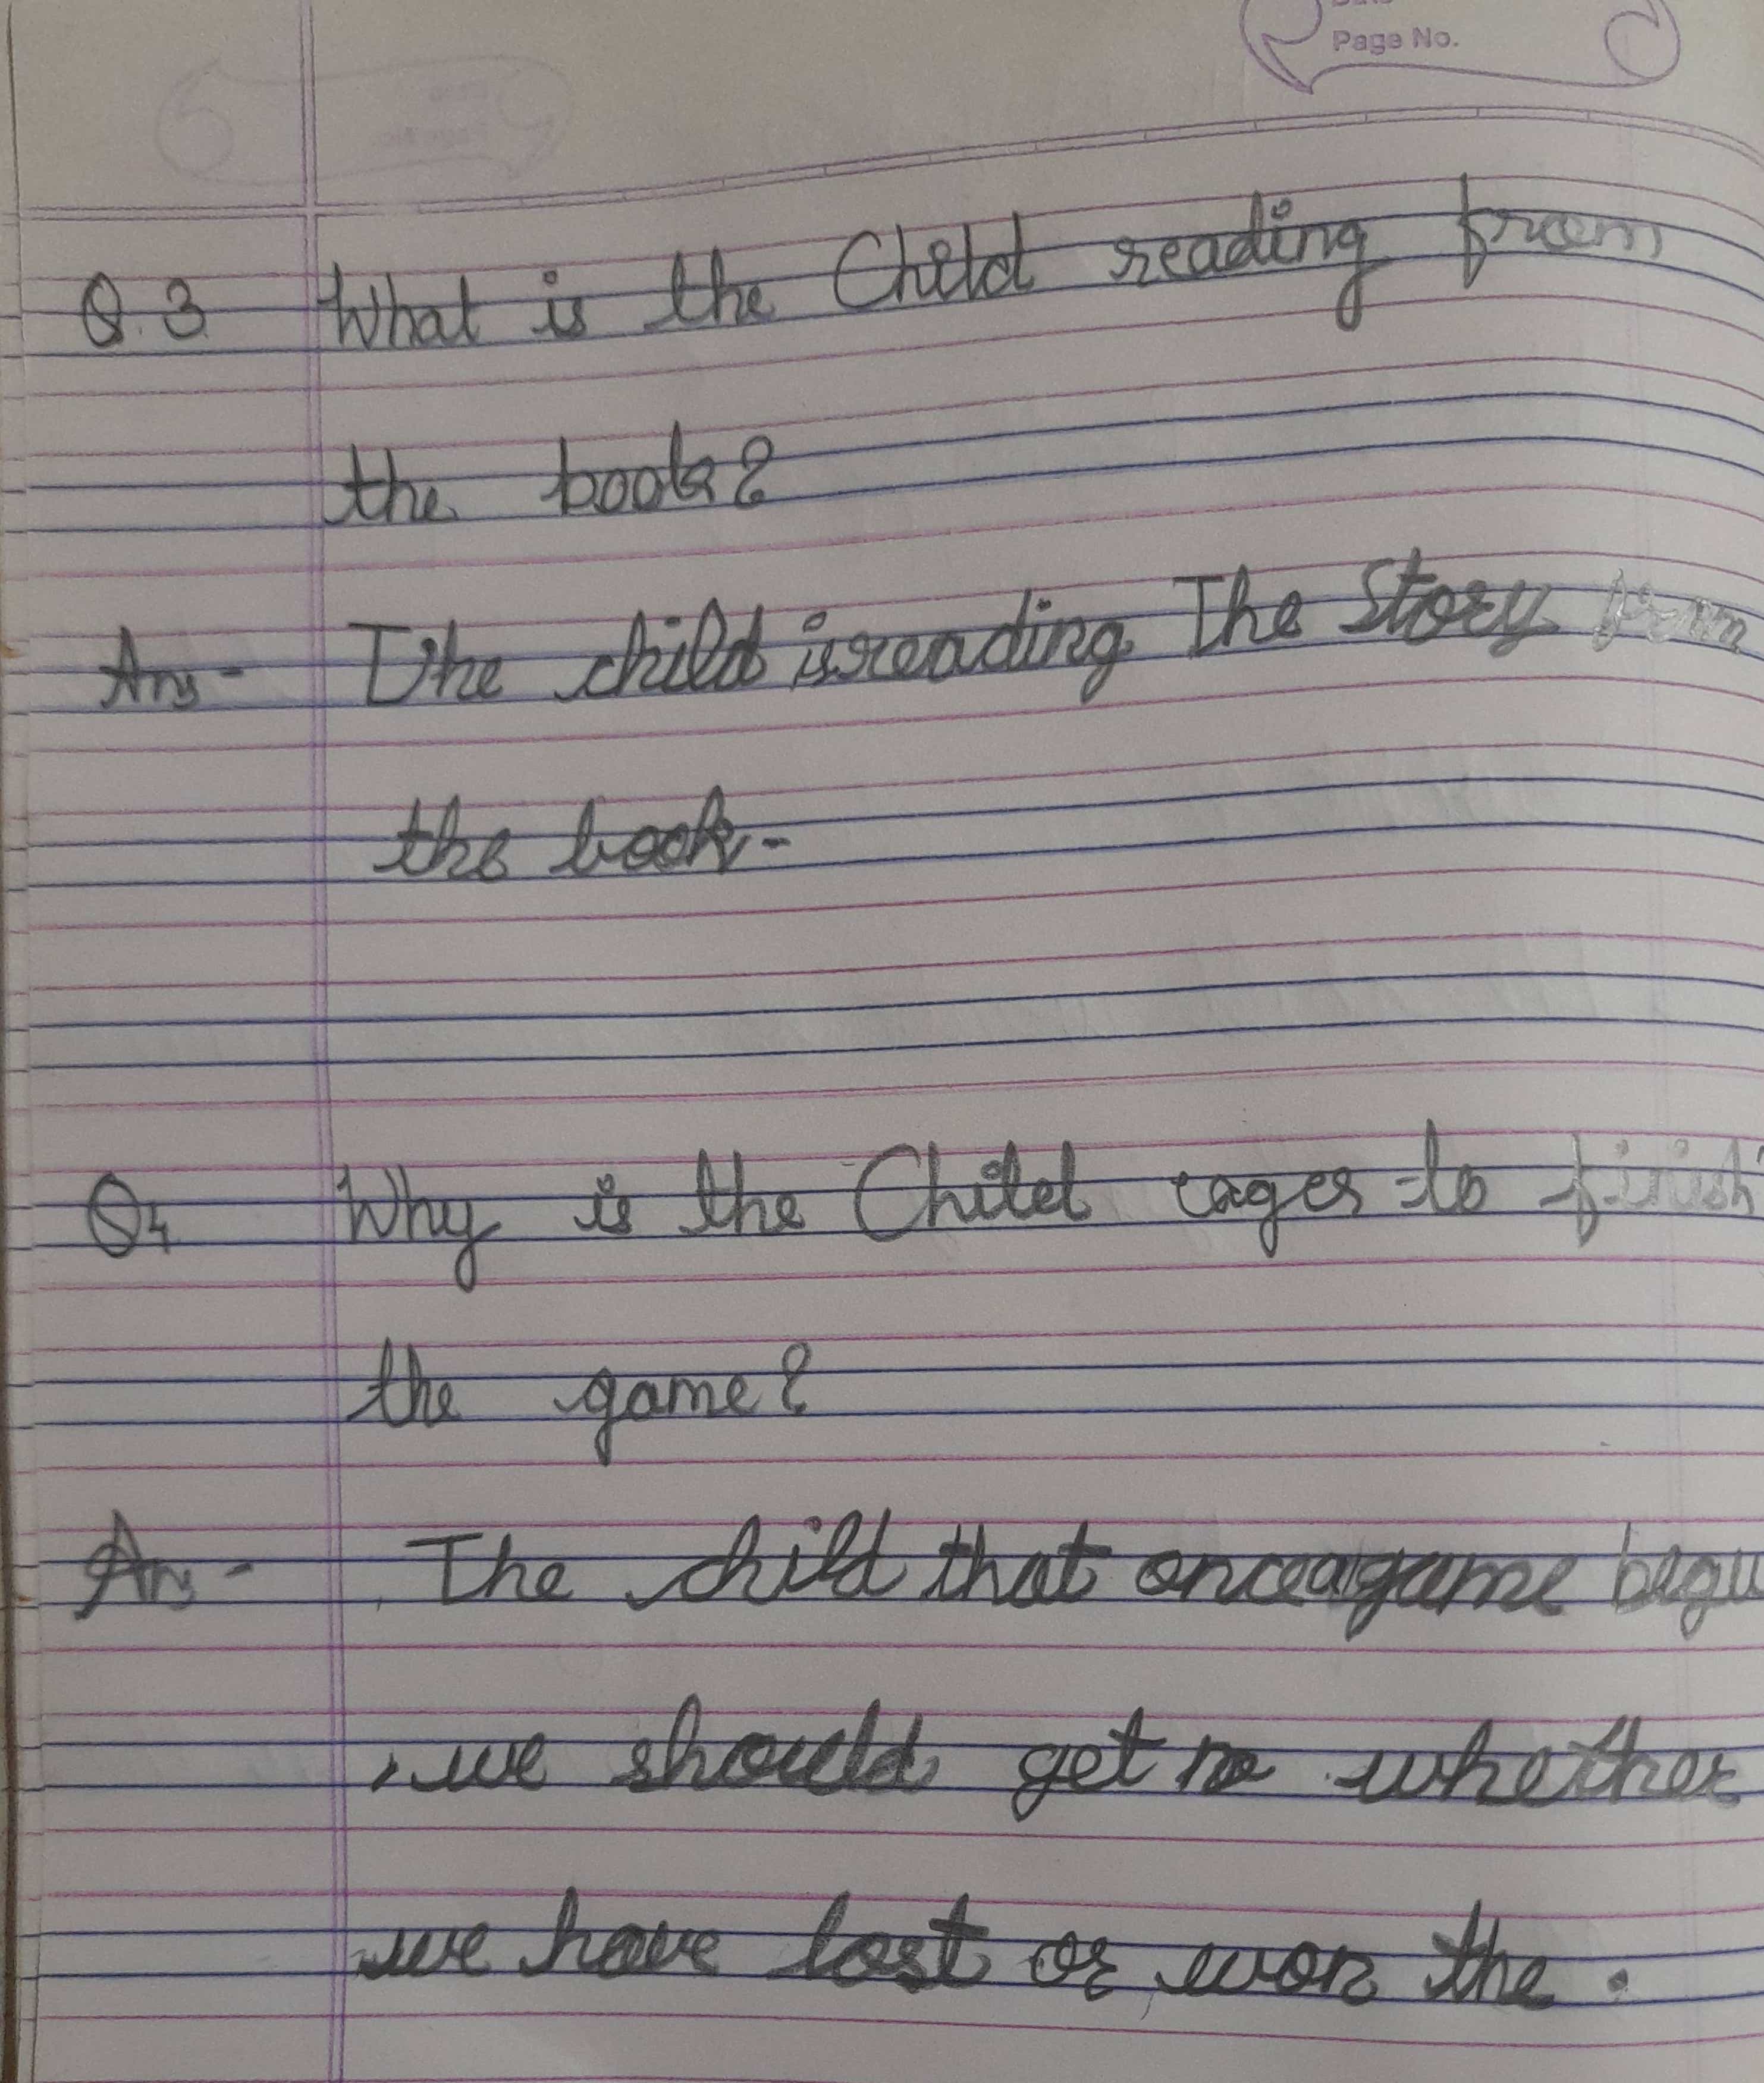 Page No.
Q.3 What is the Child reading from
the book?
Ans- The child is reading The Story from
the book.-
Q4 Why is the Child eager to finish
the game?
Ans- The child that once a game begu
, we should get no whether
we have lost or won the .